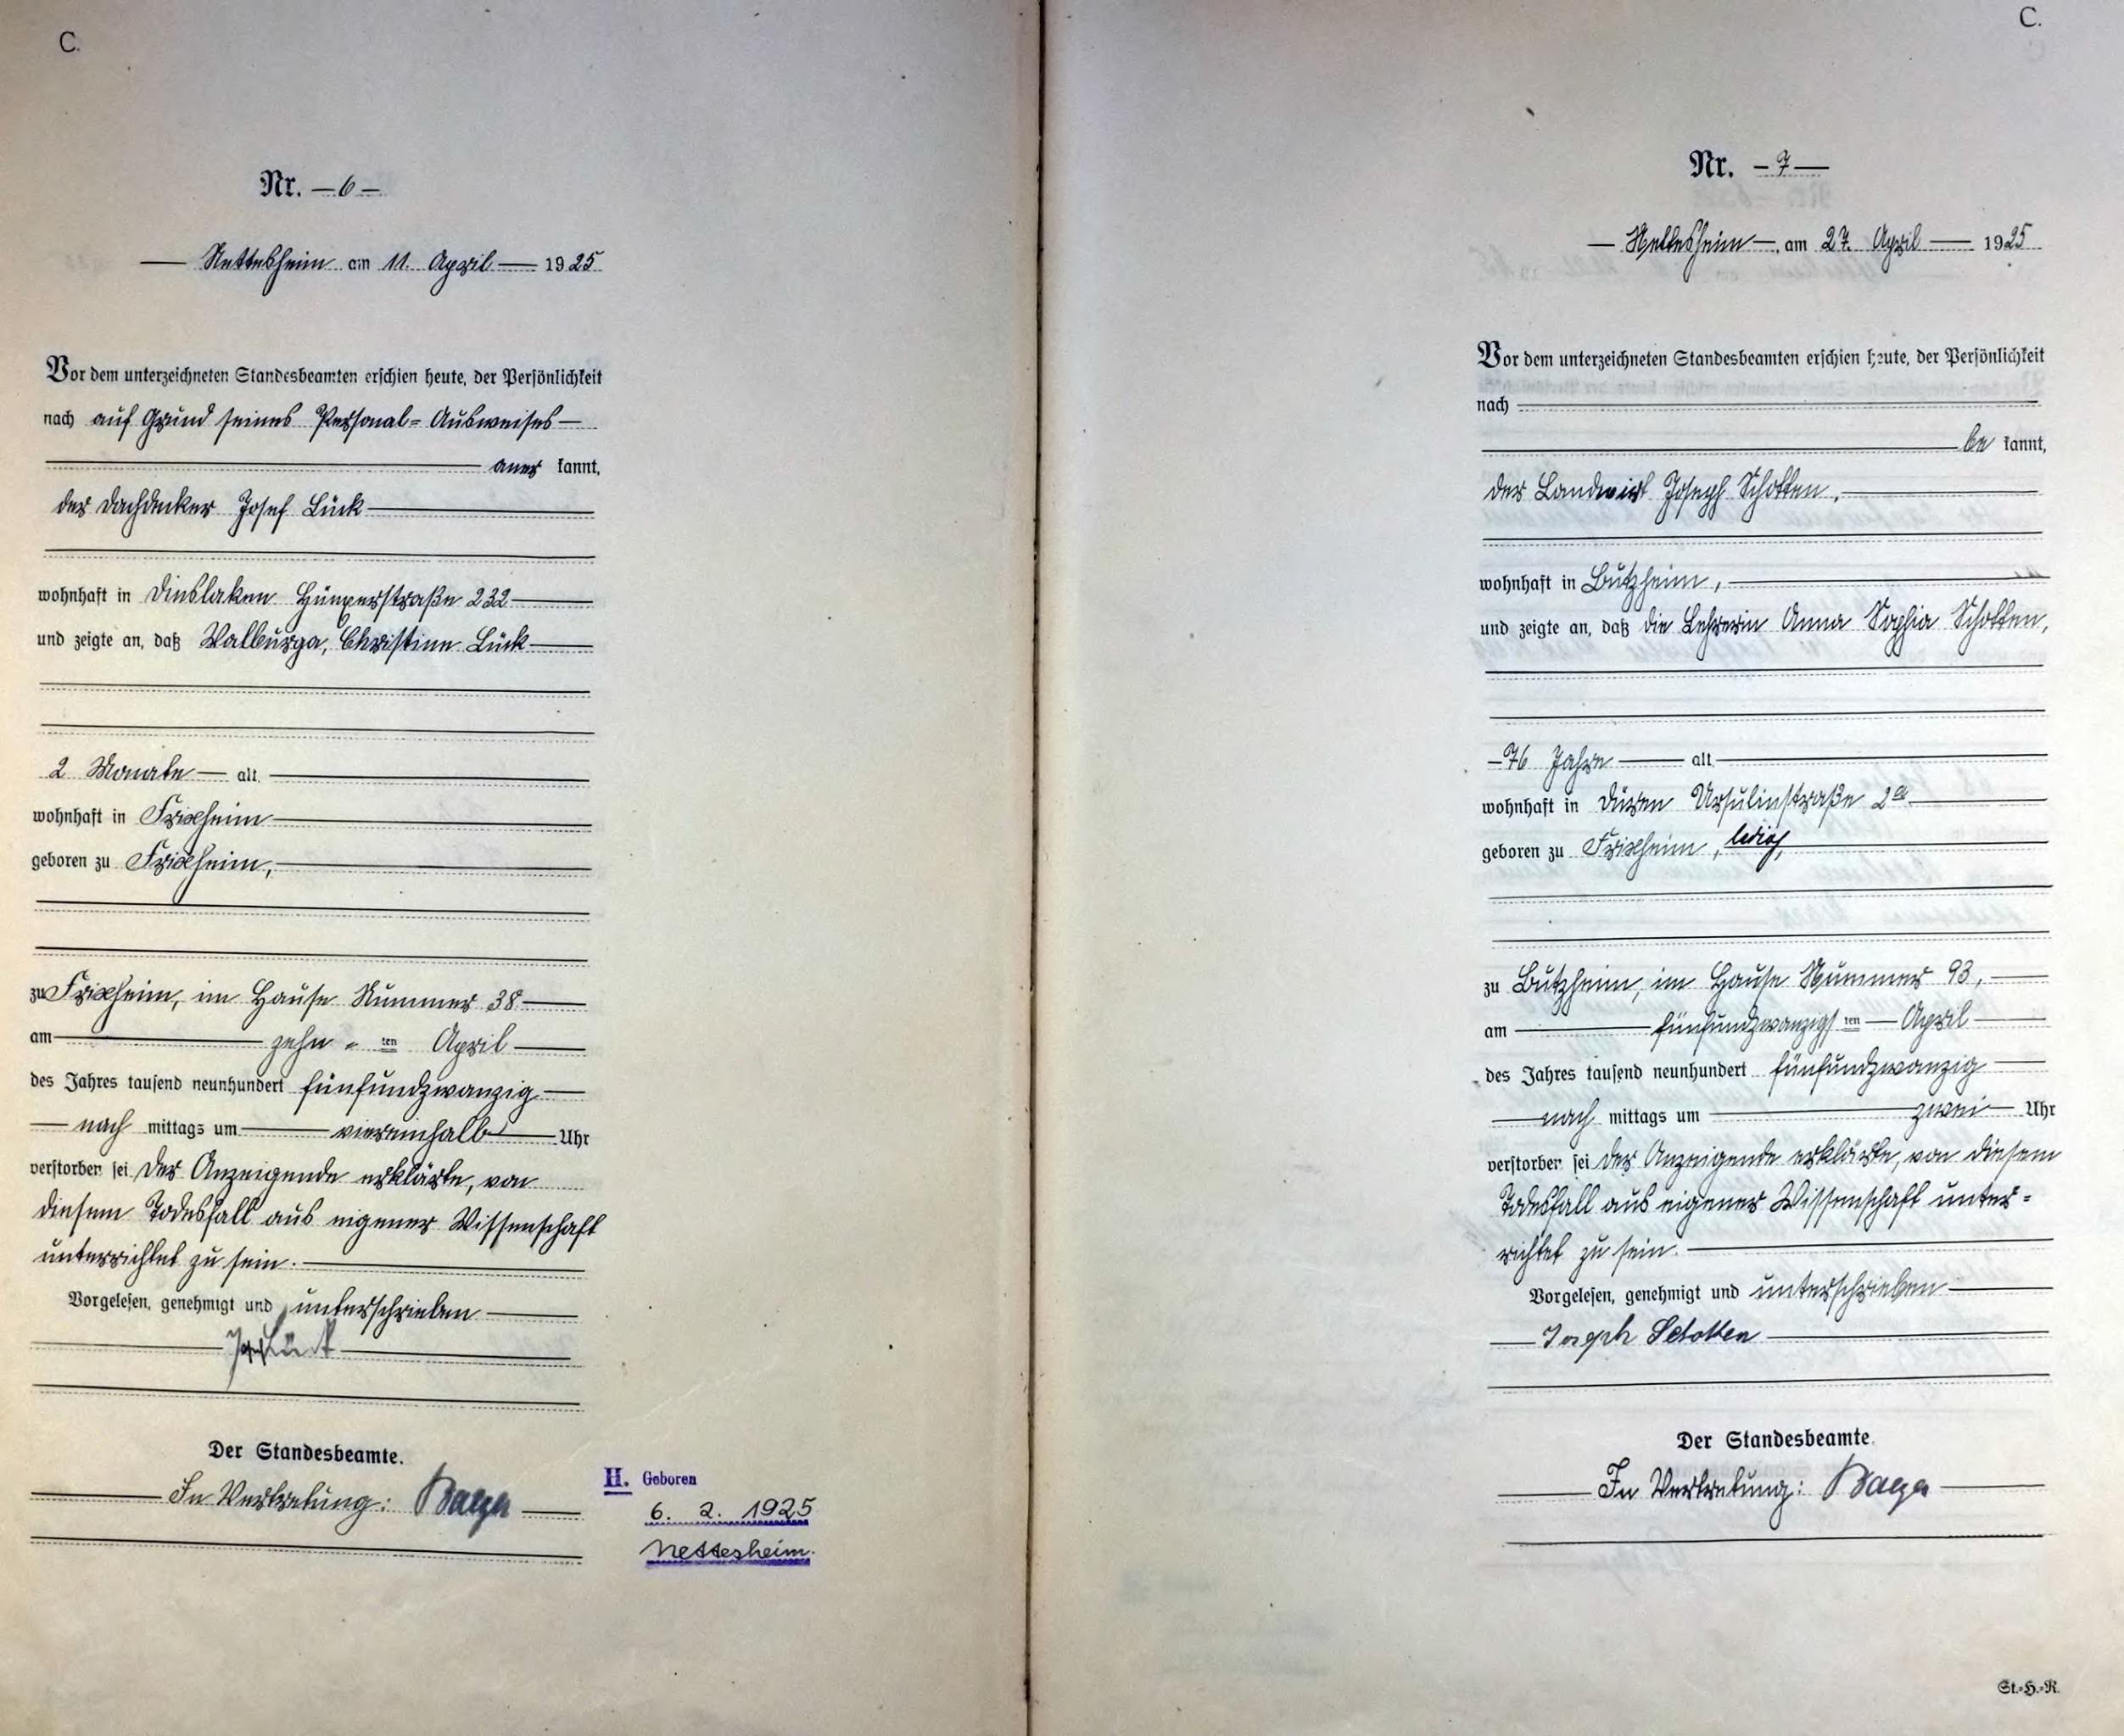 C.
Nr. — 6 —
— Nettesheim am 11. April — 1925
Vor dem unterzeichneten Standesbeamten erschien heute, der Persönlichkeit
nach auf Grund seines Personal= Ausweises —
aner kannt,
der Dachdecker Josef Lück
wohnhaft in Dinslaken Hünxerstraße 232
und zeigte an, daß Walburga, Christine Lück
2 Monate — alt
wohnhaft in Frixheim
geboren zu Frixheim,
zu Frixheim, im Hause Nummer 38
am zehn - ten April
des Jahres tausend neunhundert fünfundzwanzig
— nach mittags um viereinhalb Uhr
verstorben sei Der Anzeigende erklärte, von
diesem Todesfall aus eigener Wissenschaft
unterrichtet zu sein.
Vorgelesen, genehmigt und unterschrieben
Jos Lück
Der Standesbeamte.
In Vertretung:
H. Geboren
6. 2. 1925
Nettesheim.
C.
Nr. — 7 —
— Nettesheim —, am 27. April — 1925
Vor dem unterzeichneten Standesbeamten erschien heute, der Persönlichkeit
nach
be kannt,
der Landwirt Joseph Schotten,
wohnhaft in Butzheim,
und zeigte an, daß die Lehrerin Anna Sophia Schotten,
— 76 Jahre — alt
wohnhaft in Düren Ursulinstraße 2a
geboren zu Frixheim, ledig,
zu Butzheim, im Hause Nummer 93,
am fünfundzwanzigsten — April
des Jahres tausend neunhundert fünfundzwanzig
— nach mittags um zwei — Uhr
verstorben sei Der Anzeigende erklärte, von diesem
Todesfall aus eigener Wissenschaft unter=
richtet zu sein.
Vorgelesen, genehmigt und unterschrieben
Joseph Schotten
Der Standesbeamte.
In Vertretung:
St.=H.=R.